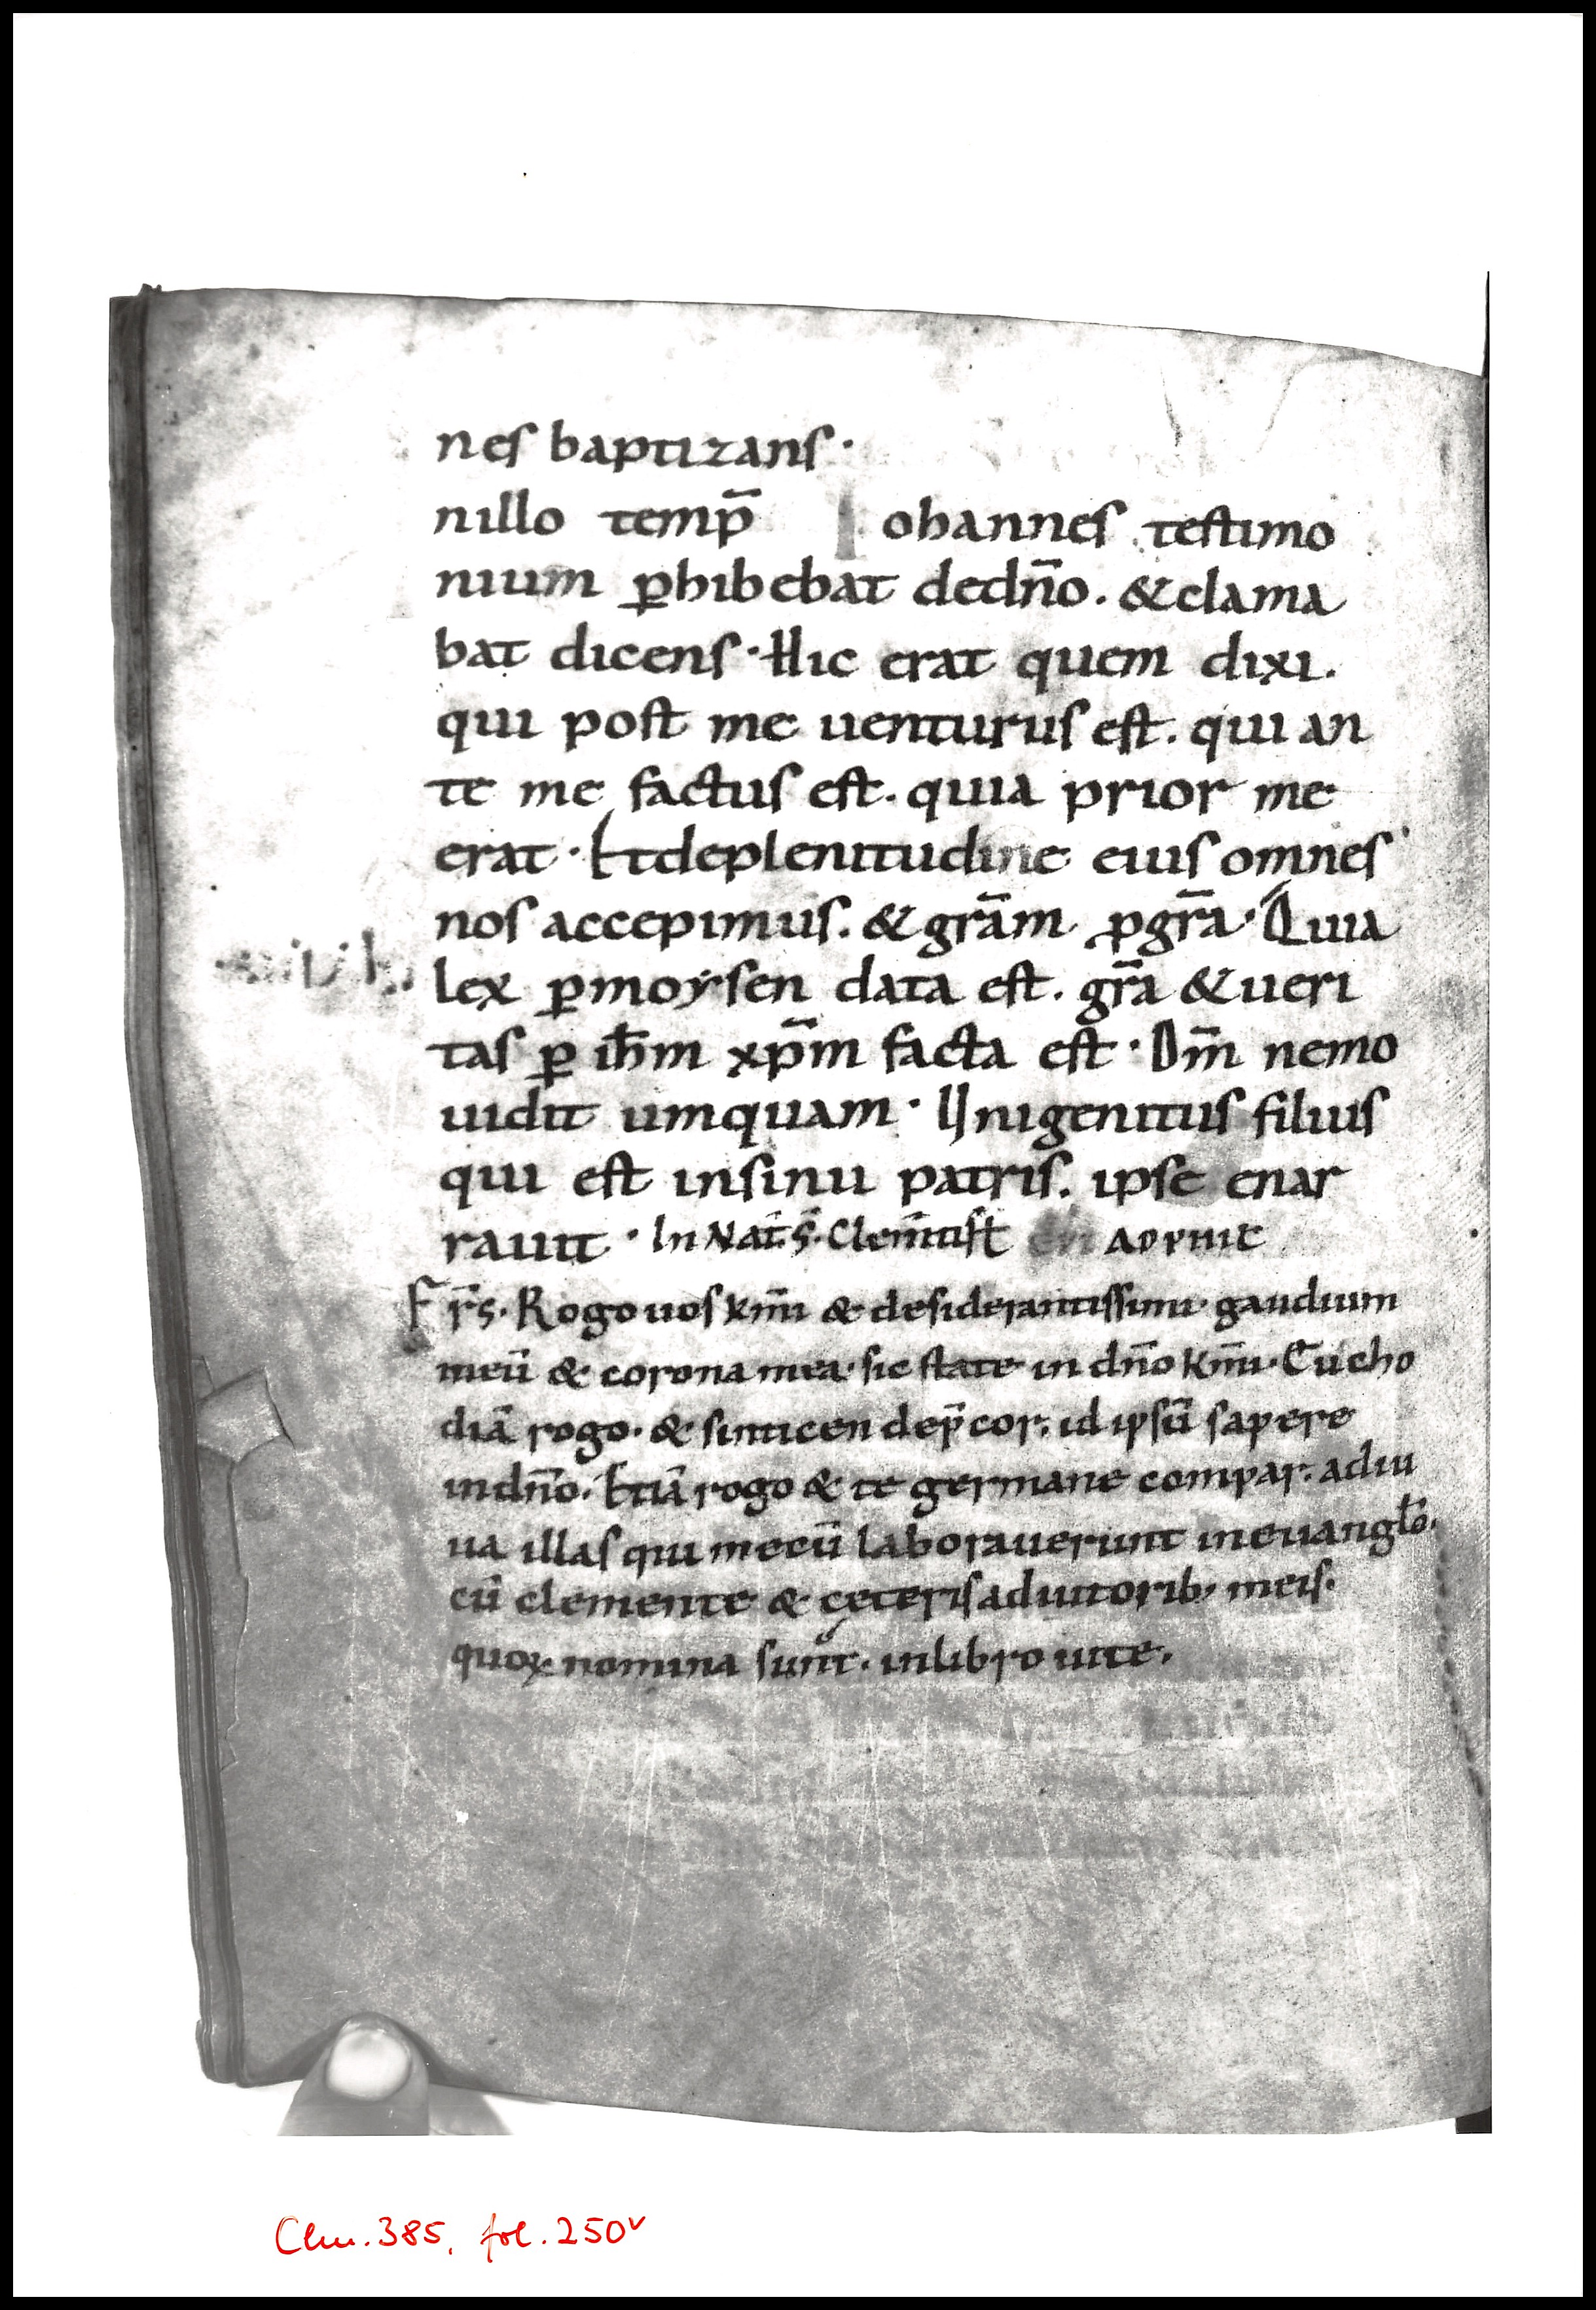 nes baptizans·
nillo temp̄ Iohannes testimo
nium ꝑhibebat dedn̄o. &clama
bat dicens· Hic erat quem dixi.
qui post me uenturus est. qui an
te me factus est. quia prior me
erat· Etdeplenitudine eius omnes
nos accepimus. & grām ꝓgrā· Quia
lex ꝑmoẏsen data est. grā &ueri
tas ꝑ ihm̄ xp̄m facta est· Dm̄ nemo
uidit umquam· Unigenitus filius
qui est insinu patris. ipse enar
rauit· In Nat̄. S̄. Clem̄tis
Fr̄s. Rogo uos km̄i & desiderantissimi gaudium
meū & corona mea· sic state in dn̄o km̄i. Eucho
diā rogo. & sinticen dep̄cor. id ipsū sapere
indn̄o. Etiā rogo & te germane compar. adiu
ua illas qui mecū laborauerunt ineuangl̄o.
cū clemente & ceterisadiutorib; meis.
quoꝝ nomina sunt. inlibro uite.
Clm. 385, fol. 250v